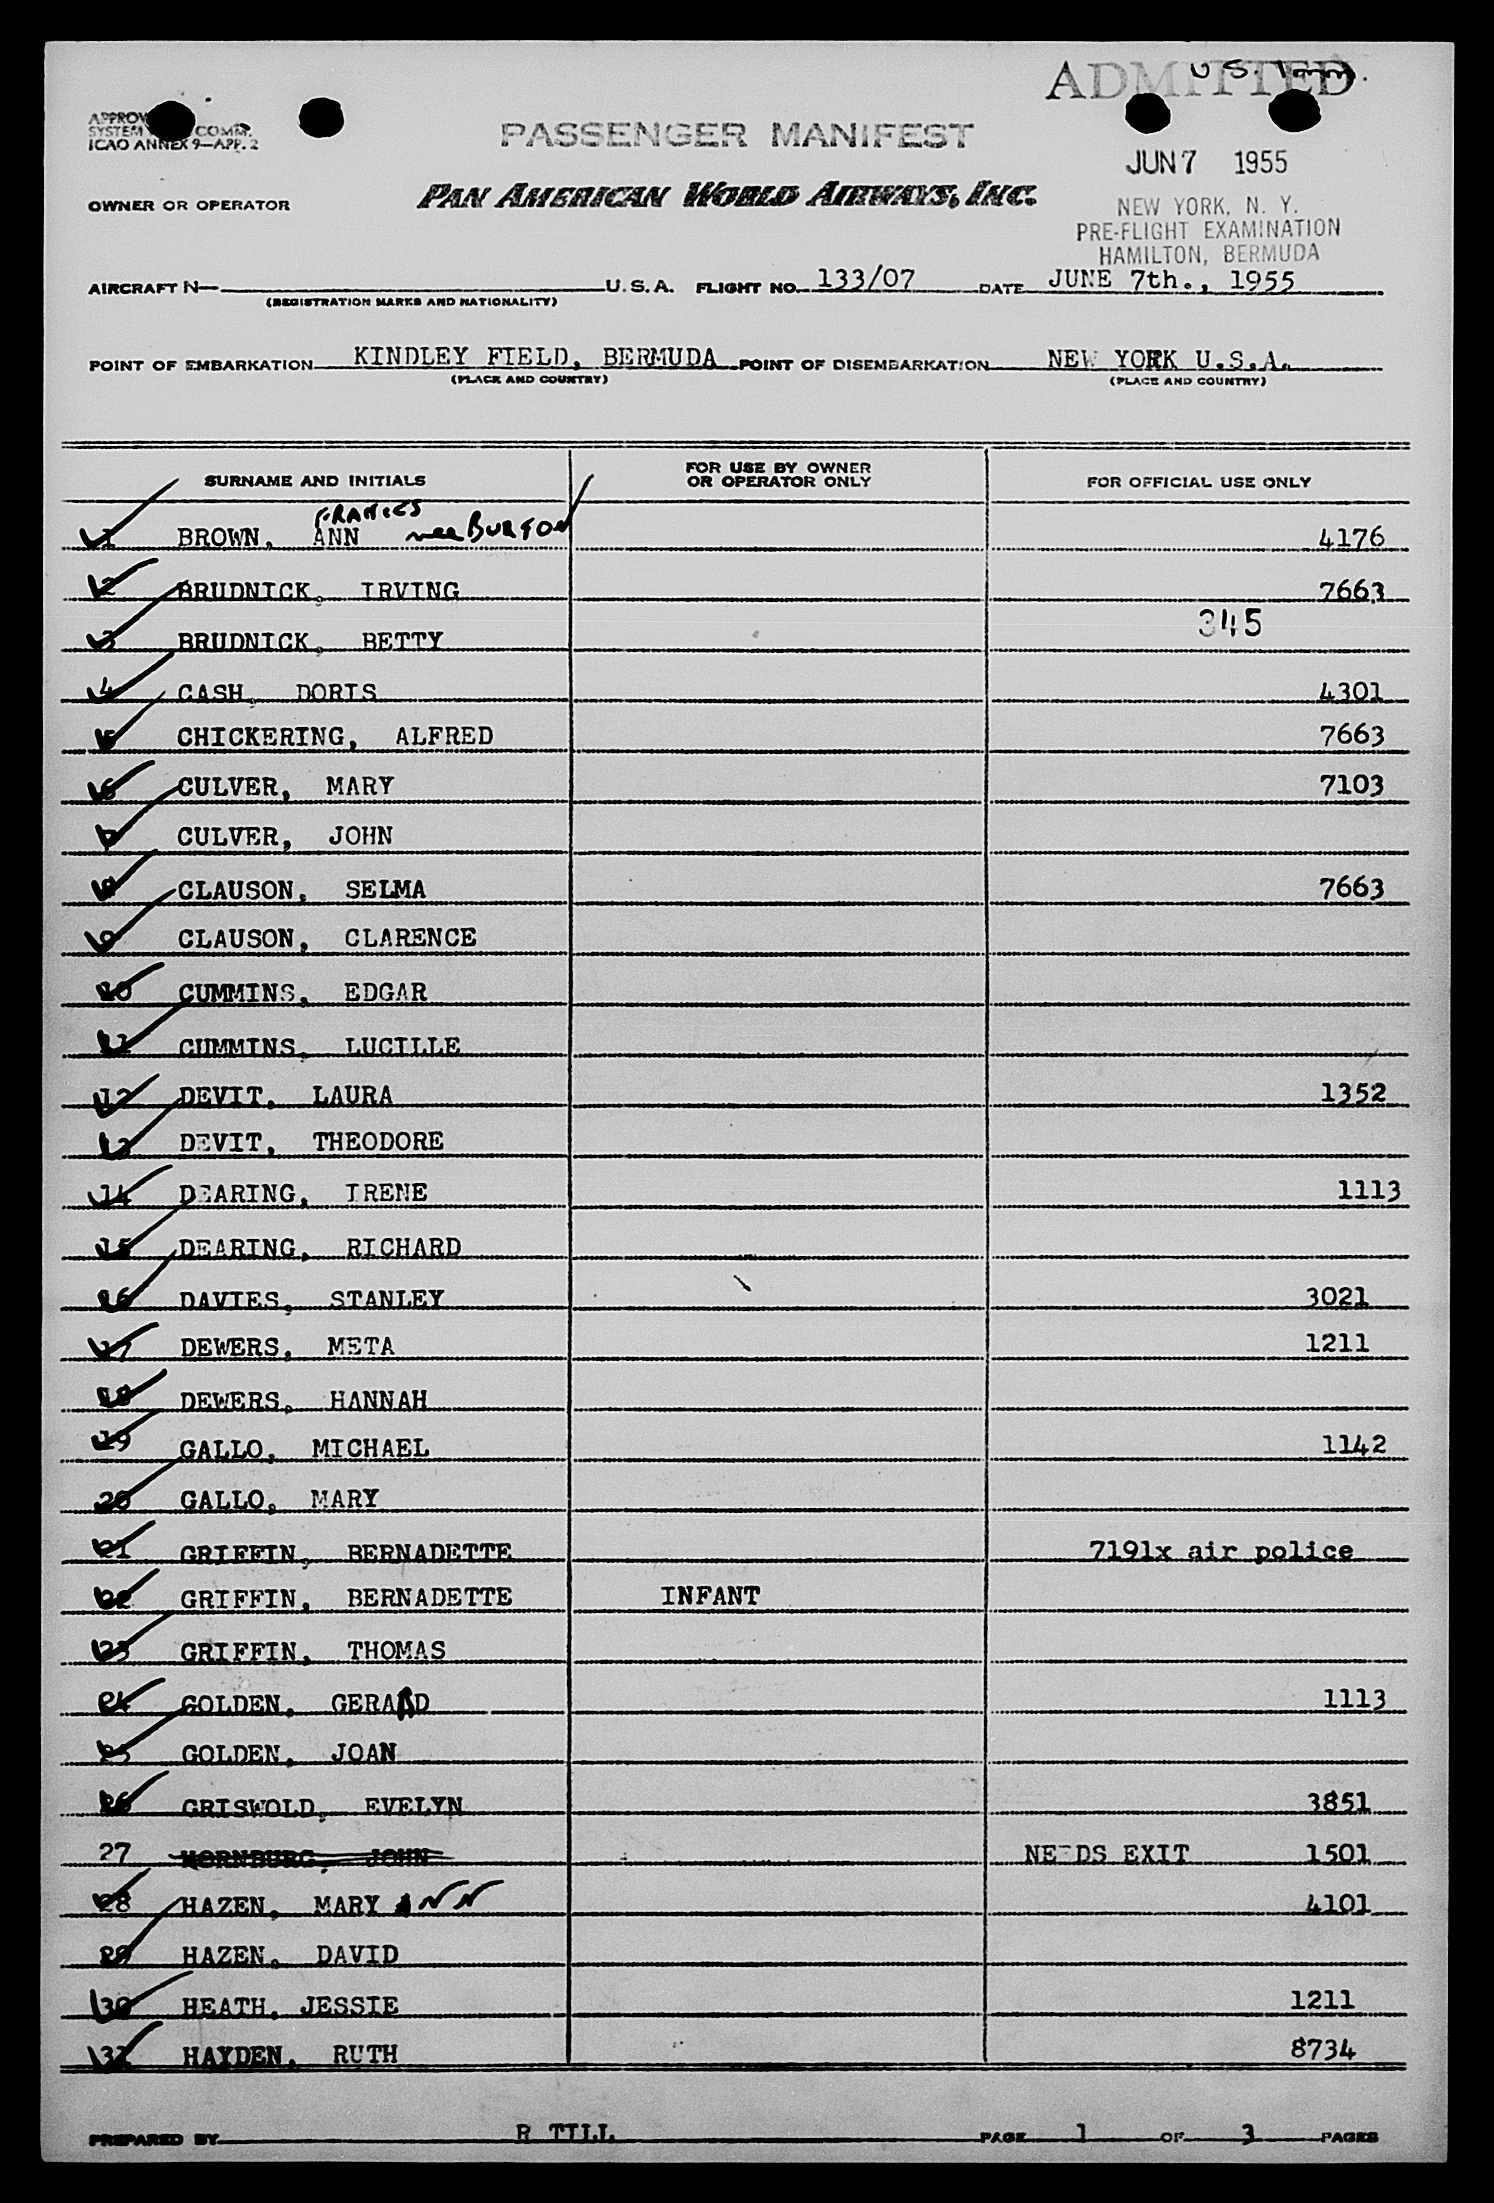 ADMITTED
U.S.
APPROV
SYSTEM COMM.
ICAO ANNEX 9—APP. 2
PASSENGER MANIFEST
JUN 7 1955
OWNER OR OPERATOR PAN AMERICAN WORLD AIRWAYS, INC.
NEW YORK, N. Y.
PRE-FLIGHT EXAMINATION
HAMILTON, BERMUDA
AIRCRAFT N— U.S.A. FLIGHT NO. 133/07 DATE JUNE 7th., 1955
(REGISTRATION MARKS AND NATIONALITY)
POINT OF EMBARKATION KINDLEY FIELD, BERMUDA POINT OF DISEMBARKATION NEW YORK U.S.A.
(PLACE AND COUNTRY) (PLACE AND COUNTRY)
SURNAME AND INITIALS FOR USE BY OWNER OR OPERATOR ONLY FOR OFFICIAL USE ONLY
FRANCES
1 BROWN, ANN nee BURTON 4176
2 BRUDNICK, IRVING 7663
345
3 BRUDNICK, BETTY
4 CASH, DORIS 4301
5 CHICKERING, ALFRED 7663
6 CULVER, MARY 7103
7 CULVER, JOHN
8 CLAUSON, SELMA 7663
9 CLAUSON, CLARENCE
10 CUMMINS, EDGAR
11 CUMMINS, LUCILLE
12 DEVIT, LAURA 1352
13 DEVIT, THEODORE
14 DEARING, IRENE 1113
15 DEARING, RICHARD
16 DAVIES, STANLEY 3021
17 DEWERS, META 1211
18 DEWERS, HANNAH
19 GALLO, MICHAEL 1142
20 GALLO, MARY
21 GRIFFIN, BERNADETTE 7191x air police
22 GRIFFIN, BERNADETTE INFANT
23 GRIFFIN, THOMAS
24 GOLDEN, GERARD 1113
25 GOLDEN, JOAN
26 GRISWOLD, EVELYN 3851
27 HORNBURG, JOHN NEEDS EXIT 1501
28 HAZEN, MARY ANN 4101
29 HAZEN, DAVID
30 HEATH, JESSIE 1211
31 HAYDEN, RUTH 8734
PREPARED BY R TILL PAGE 1 OF 3 PAGES